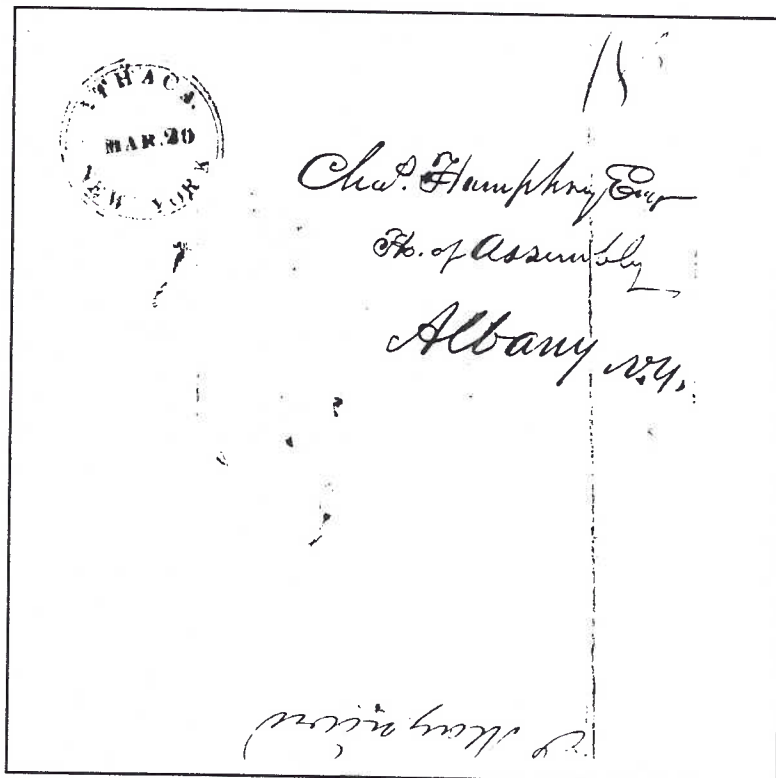 ITHACA.
MAR. 20
NEW YORK
Chas. Humphrey Esqr
Ho. of Assembly
Albany N.Y.